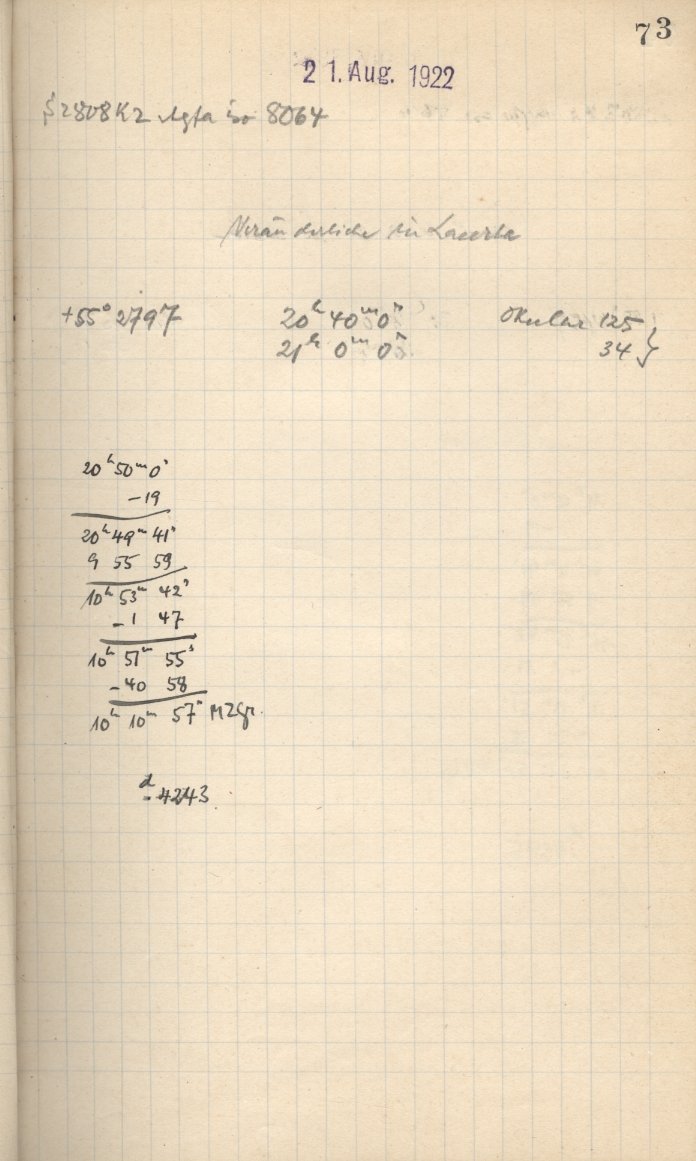 73
21. Aug. 1922
S 2808 K2 Agfa iso 8064
Veränderliche in Lacerta
+55° 2797 20ʰ 40ᵐ 0ˢ Okular 125
21ʰ 0ᵐ 0ˢ 34 }
20ʰ 50ᵐ 0ˢ
-19
20ʰ 49ᵐ 41ˢ
9 55 59
10ʰ 53ᵐ 42ˢ
-1 47
10ʰ 51ᵐ 55ˢ
-40 58
10ʰ 10ᵐ 57ˢ MZGr.
ᵈ.4243